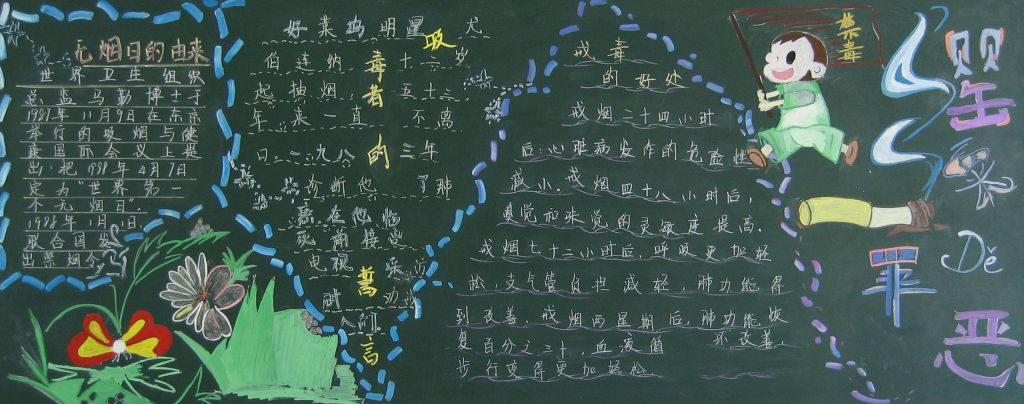 无烟日的由来
世界卫生组织
总监马勒博士于
1987年11月9日在东京
举行的吸烟与健
康国际会议上提
出把1988年4月7日
定为“世界第一
个无烟日”
1988年1月1日
联合国发
出禁烟令
好莱坞明星
伯连纳 十二岁
起抽烟 五十三
年来一直 不离
口一九八三年
诊断他 了肺
癌在他临
死前接受
电视
劝
人们
吸毒者的
高
戒毒
的好处
戒烟二十四小时
后,心脏病发作的危险性
减小.戒烟四十八小时后,
嗅觉和味觉的灵敏度提高.
戒烟七十二小时后,呼吸更加轻
松,支气管负担减轻,肺功能得
到改善,戒烟两星期后,肺功能恢
复百分之三十,血液值 环改善,
步行变得更加轻松
禁毒
罂粟
De
罪恶